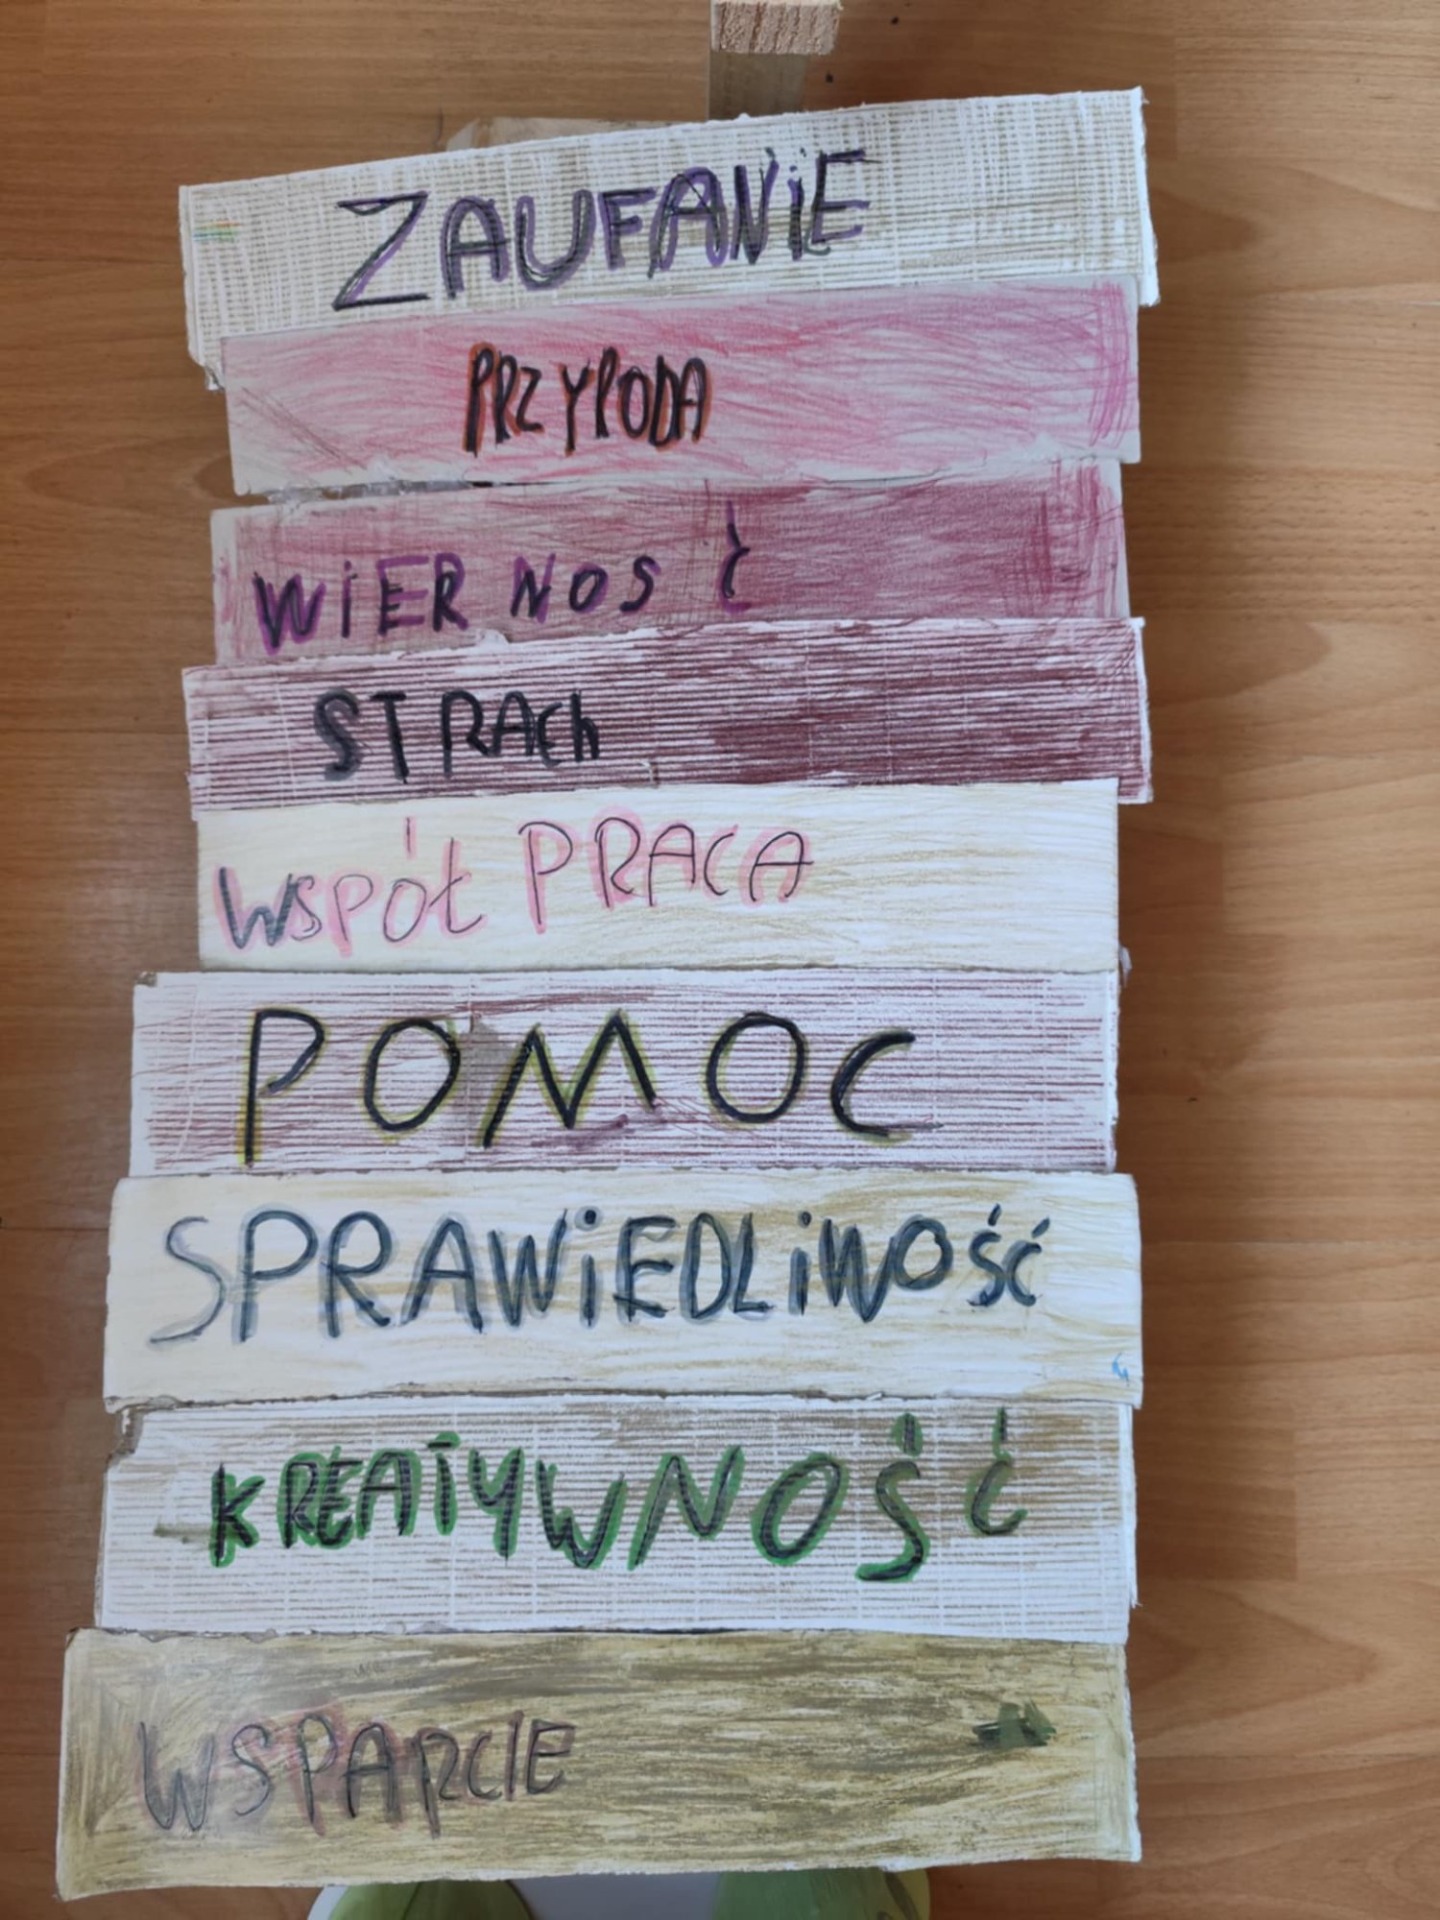 ZAUFANIE
PRZYRODA
WiER NOS Ć
STRACh
WSPÓŁ PRACA
POMOC
SPRAWiEDLiWOŚĆ
KREATYWNOŚĆ
WSPARCIE